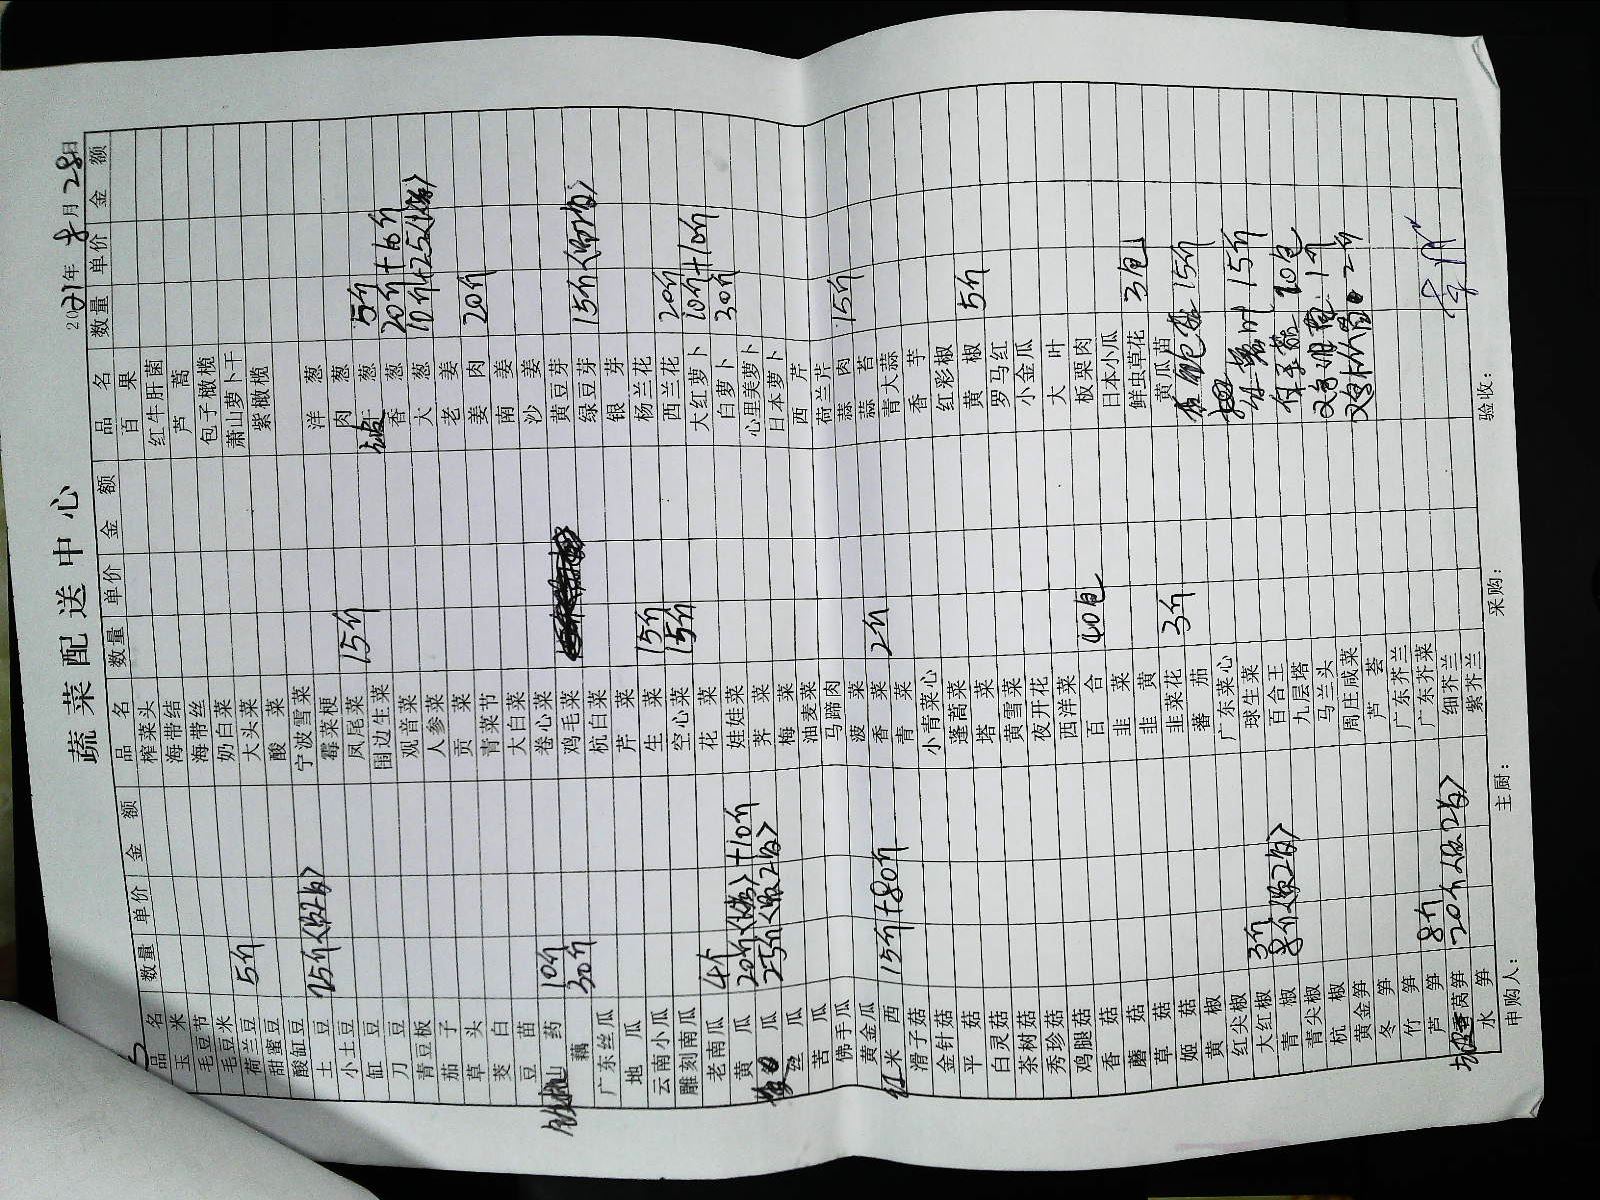 蔬菜配送中心
2021年8月28日
品名 数量 单价 金额
玉米
毛豆节
毛豆米
荷兰豆 5斤
甜蜜豆
酸缸豆
土豆 25斤
小土豆
缸豆
刀豆
青豆板
茄子
草头
茭白
豆苗
山药 10斤
藕 30斤
广东丝瓜
地瓜
云南小瓜
雕刻南瓜
老南瓜 4个
黄瓜 20斤 +10斤
瓜 25斤
丝瓜
苦瓜
佛手瓜
黄金瓜
红米西 15斤+80斤
滑子菇
金针菇
平菇
白灵菇
茶树菇
秀珍菇
鸡腿菇
香菇
蘑菇
草菇
姬菇
黄椒
红尖椒
大红椒 3斤
青椒 8斤
青尖椒
杭椒
黄金笋
冬笋
竹笋
芦笋 8斤
莴笋 20斤
水笋
品名 数量 单价 金额
榨菜头
海带结
海带丝
奶白菜
大头菜
酸菜
宁波雪菜
霉菜梗
凤尾菜 15斤
围边生菜
观音菜
人参菜
贡菜
青菜节
大白菜
卷心菜
鸡毛菜
杭白菜
芹菜
生菜 15斤
空心菜 15斤
花菜
娃娃菜
荠菜
梅菜
油麦菜
马蹄肉
菠菜
香菜 2斤
青菜
小青菜心
蓬蒿菜
塔菜
黄雪菜
夜开花
西洋菜
百合 40包
韭菜
韭黄
韭菜花 3斤
番茄
广东菜心
球生菜
百合王
九层塔
马兰头
周庄咸菜
芦荟
广东芥兰
广东芥菜
细芥兰
紫芥兰
品名 数量 单价 金额
百果
红牛肝菌
芦蒿
包子橄榄
萧山萝卜干
紫橄榄
洋葱
肉葱
葱 5斤
香葱 20斤+16斤
大葱 10斤+25
老姜
姜肉 20斤
南姜
沙姜
黄豆芽
绿豆芽 15斤
银芽
杨兰花
西兰花 20斤
大红萝卜 10斤+10斤
白萝卜 30斤
心里美萝卜
日本萝卜
西芹
荷兰芹
蒜肉 15斤
蒜苔
青大蒜
香芋
红彩椒
黄椒 5斤
罗马红
小金瓜
大叶
板栗肉
日本小瓜
鲜虫草花 3包
黄瓜苗
15斤
15斤
20包
1斤
2斤
申购人： 主厨： 采购： 验收：